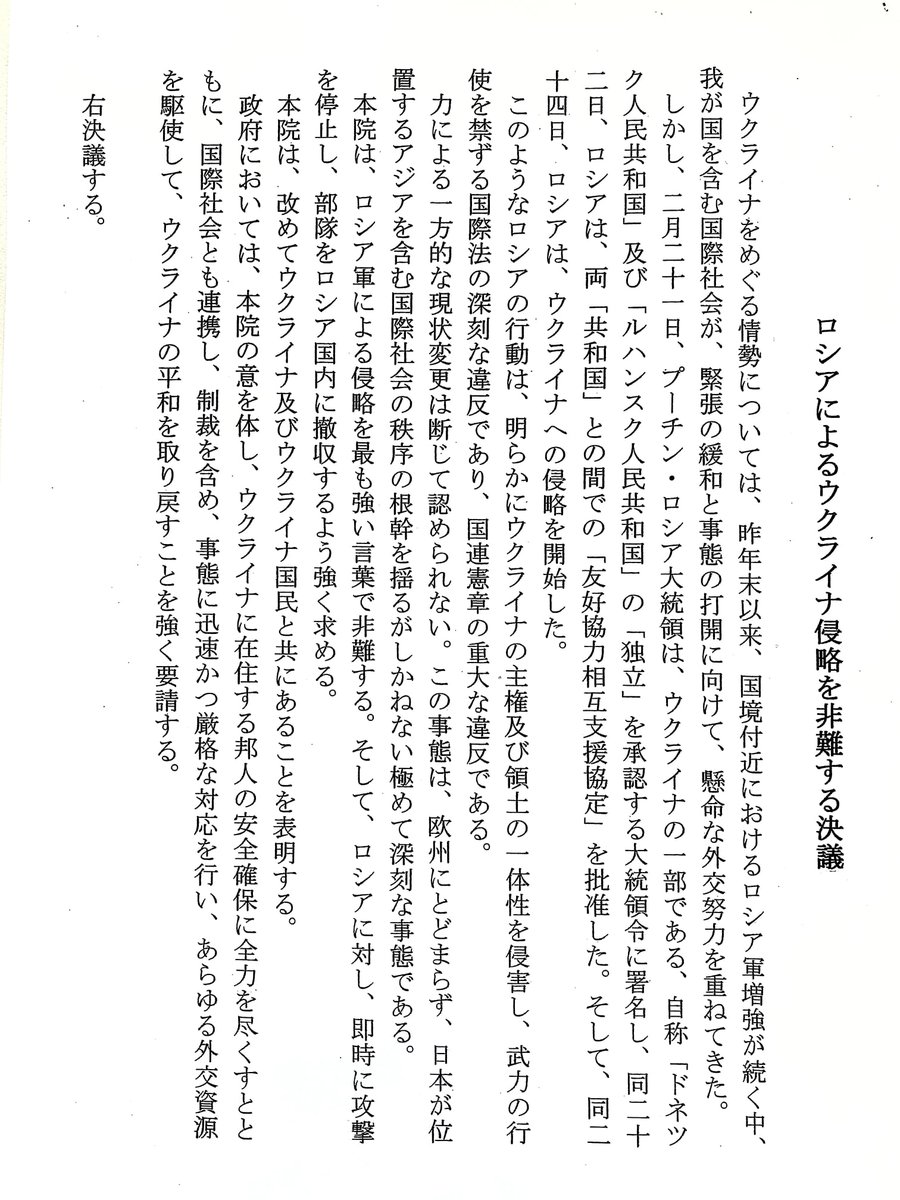 ロシアによるウクライナ侵略を非難する決議
ウクライナをめぐる情勢については、昨年末以来、国境付近におけるロシア軍増強が続く中、
我が国を含む国際社会が、緊張の緩和と事態の打開に向けて、懸命な外交努力を重ねてきた。
しかし、二月二十一日、プーチン・ロシア大統領は、ウクライナの一部である、自称「ドネツ
ク人民共和国」及び「ルハンスク人民共和国」の「独立」を承認する大統領令に署名し、同二十
二日、ロシアは、両「共和国」との間での「友好協力相互支援協定」を批准した。そして、同二
十四日、ロシアは、ウクライナへの侵略を開始した。
このようなロシアの行動は、明らかにウクライナの主権及び領土の一体性を侵害し、武力の行
使を禁ずる国際法の深刻な違反であり、国連憲章の重大な違反である。
力による一方的な現状変更は断じて認められない。この事態は、欧州にとどまらず、日本が位
置するアジアを含む国際社会の秩序の根幹を揺るがしかねない極めて深刻な事態である。
本院は、ロシア軍による侵略を最も強い言葉で非難する。そして、ロシアに対し、即時に攻撃
を停止し、部隊をロシア国内に撤収するよう強く求める。
本院は、改めてウクライナ及びウクライナ国民と共にあることを表明する。
政府においては、本院の意を体し、ウクライナに在住する邦人の安全確保に全力を尽くすとと
もに、国際社会とも連携し、制裁を含め、事態に迅速かつ厳格な対応を行い、あらゆる外交資源
を駆使して、ウクライナの平和を取り戻すことを強く要請する。
右決議する。